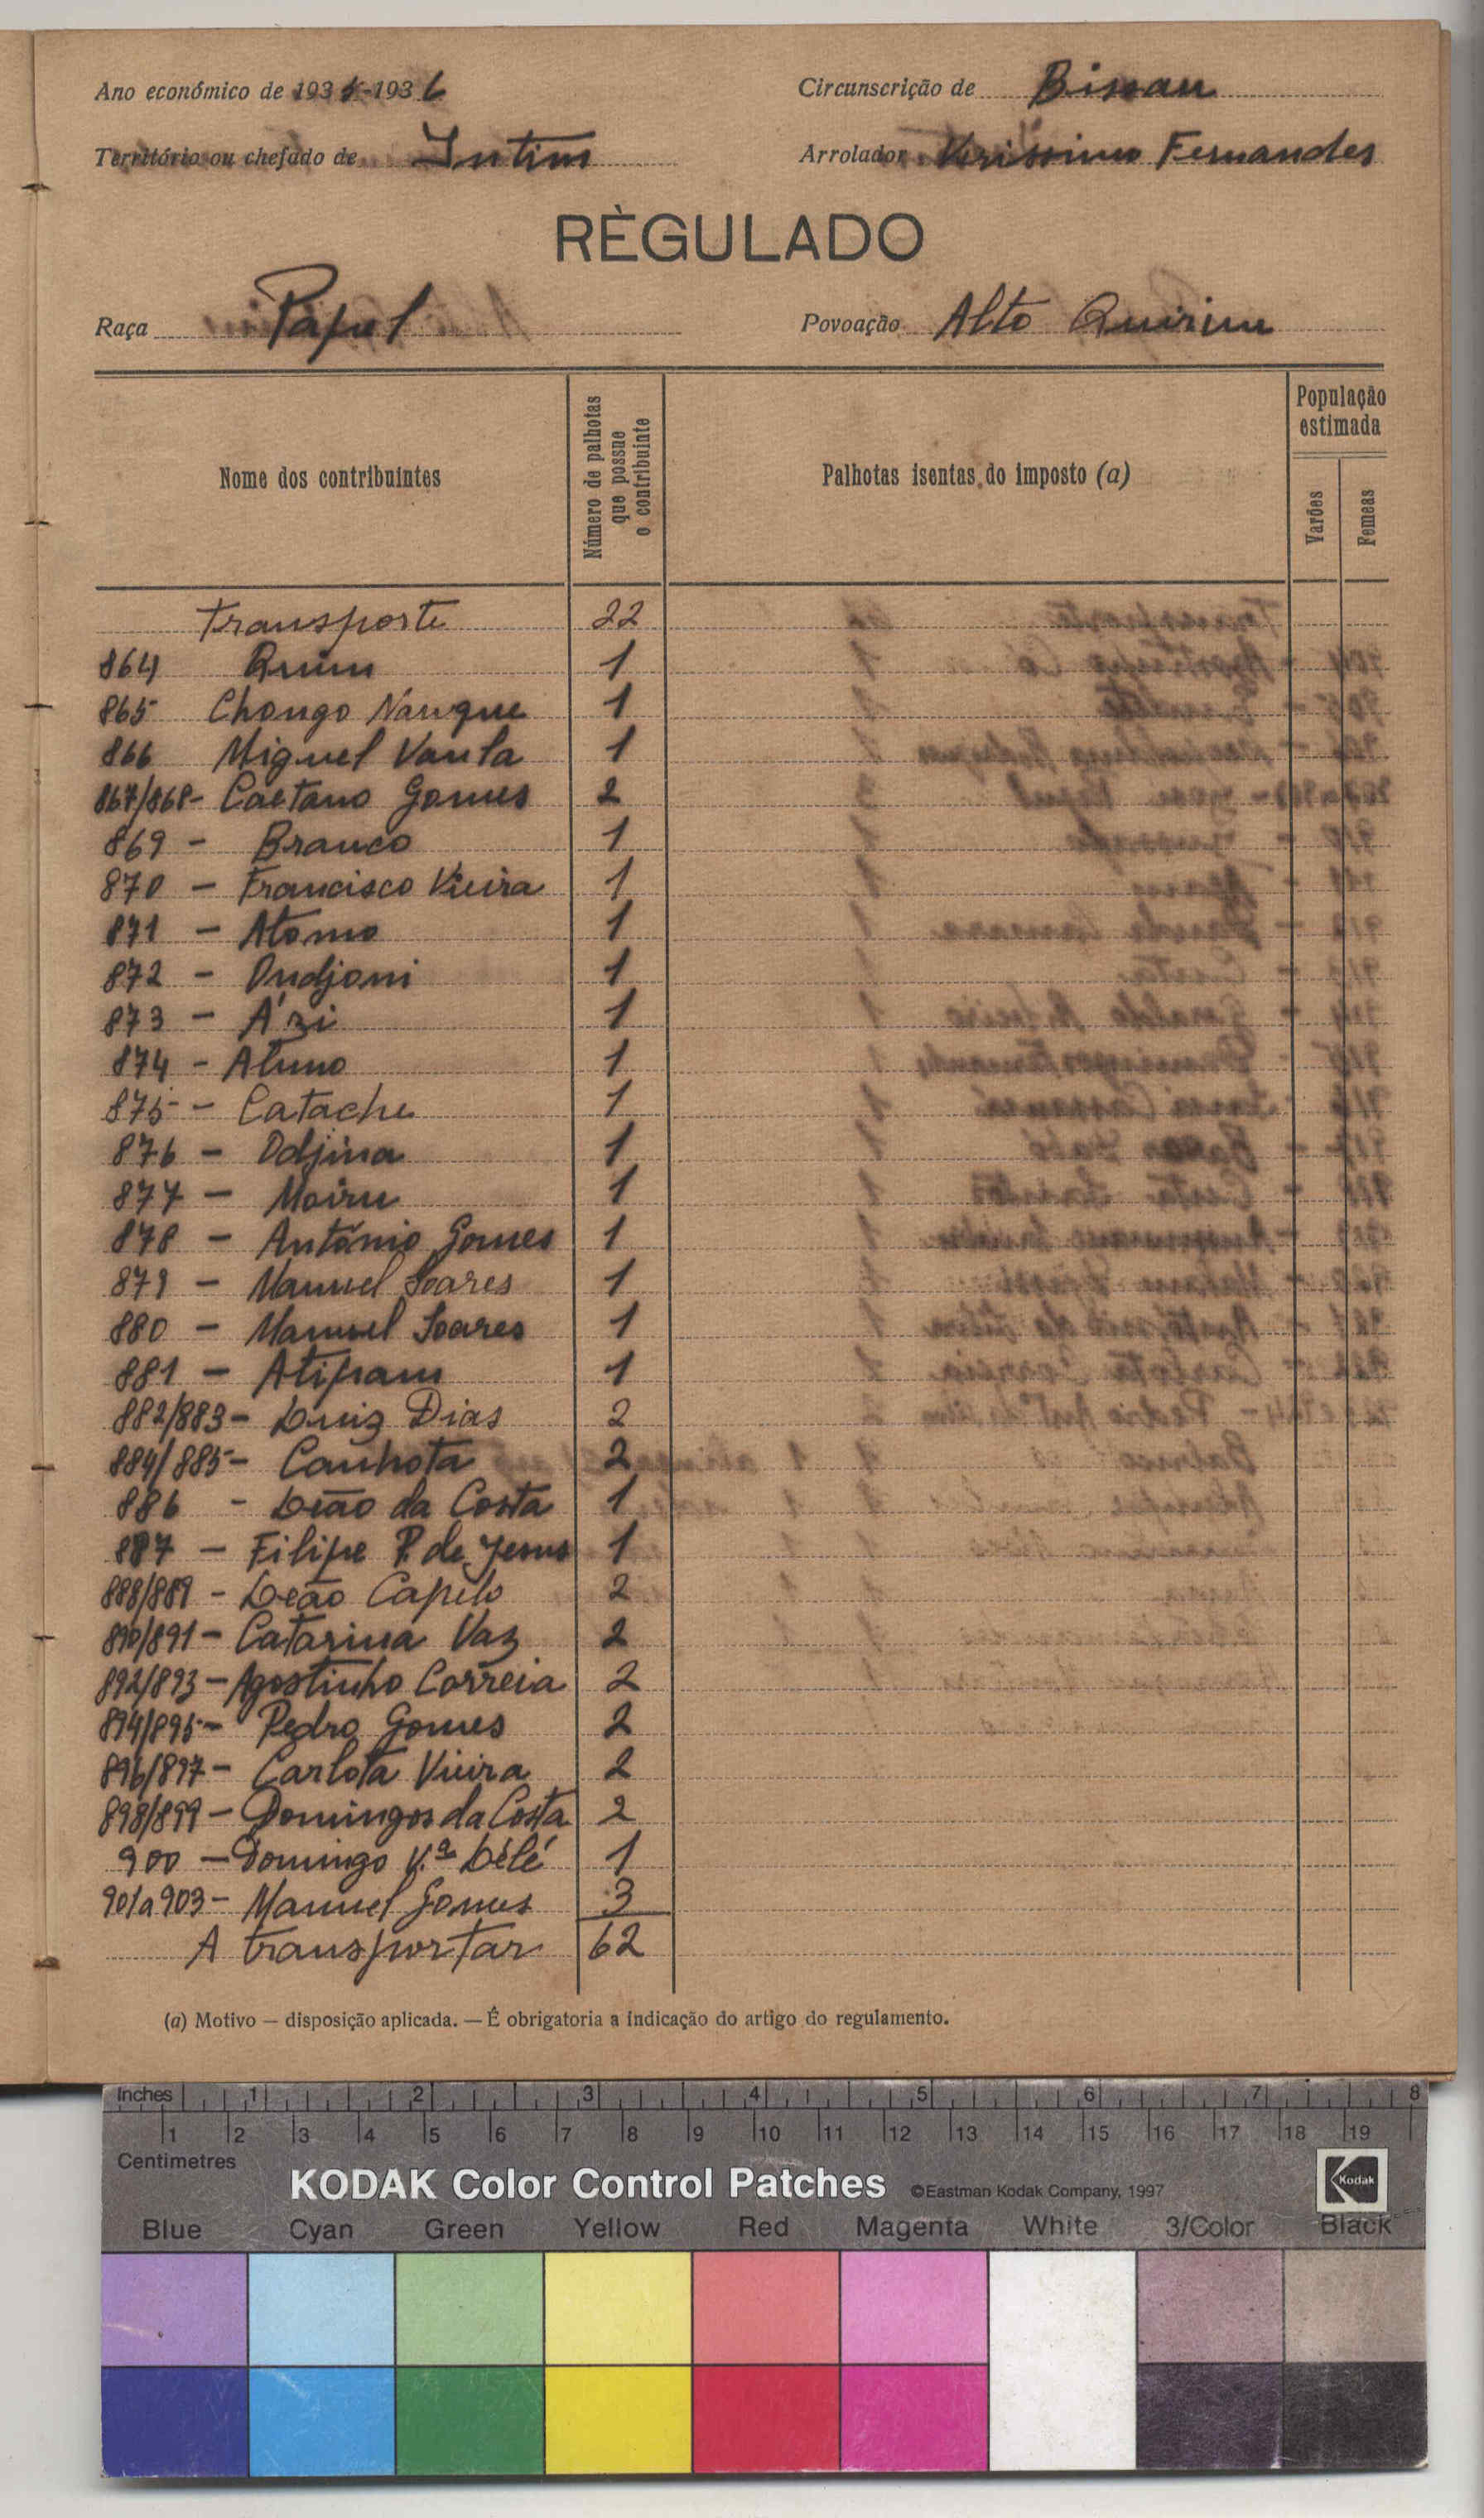 Ano económico de 1935-1936 Circunscrição de Bissau
Território ou chefado de Intim Arrolador Verissimo Fernandes
RÈGULADO
Raça Papel Povoação Alto Quirim
Nome dos contribuintes
Número de palhotas que possue o contribuinte
Palhotas isentas do imposto (a)
População estimada
Varões
Femeas
Transporte 22
864 Quim 1
865 Chongo Nanque 1
866 Miguel Vaula 1
867/868- Caetano Gomes 2
869 - Branco 1
870 - Francisco Vieira 1
871 - Atomo 1
872 - Ondjoni 1
873 - Ázi 1
874 - Atuno 1
875 - Catache 1
876 - Odjina 1
877 - Moiru 1
878 - António Gomes 1
879 - Manuel Soares 1
880 - Manuel Soares 1
881 - Atipam 1
882/883- Luiz Dias 2
884/885- Canhota 2
886 - Leão da Costa 1
887 - Filipe P. de Jesus 1
888/889 - Leão Capelo 2
890/891 - Catarina Vaz 2
892/893 - Agostinho Correia 2
894/895 - Pedro Gomes 2
896/897 - Carlota Vieira 2
898/899 - Domingos da Costa 2
900 - Domingo V.ª Lélé 1
901 a 903 - Manuel Gomes 3
A transportar 62
(a) Motivo — disposição aplicada. — É obrigatoria a indicação do artigo do regulamento.
Inches 1 2 3 4 5 6 7 8
1 2 3 4 5 6 7 8 9 10 11 12 13 14 15 16 17 18 19
Centimetres
KODAK Color Control Patches ©Eastman Kodak Company, 1997 Kodak
Blue Cyan Green Yellow Red Magenta White 3/Color Black